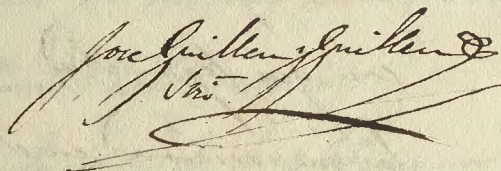 Jose Guillen y Guillen